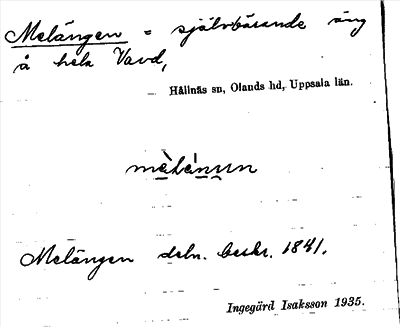 Melängen = självbärande äng
å hela Vavd,
Hållnäs sn, Olands hd, Uppsala län.
Melängen debn. beskr. 1841.
Ingegärd Isaksson 1935.